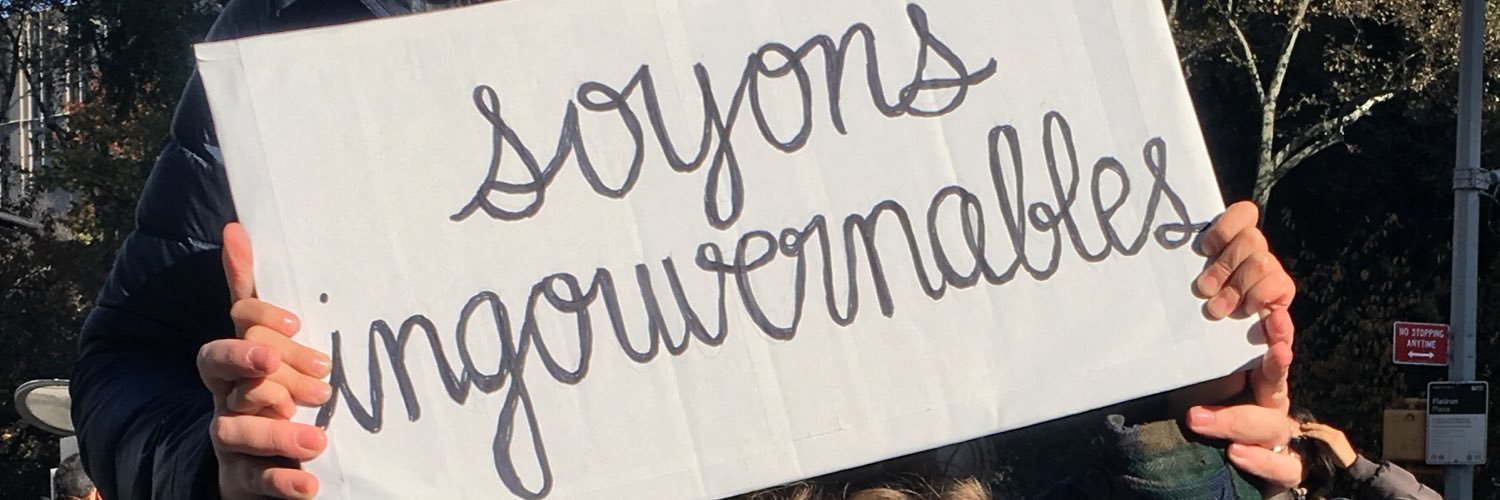 soyons
ingouvernables
NO STOPPING
ANYTIME
Flatiron
Plaza